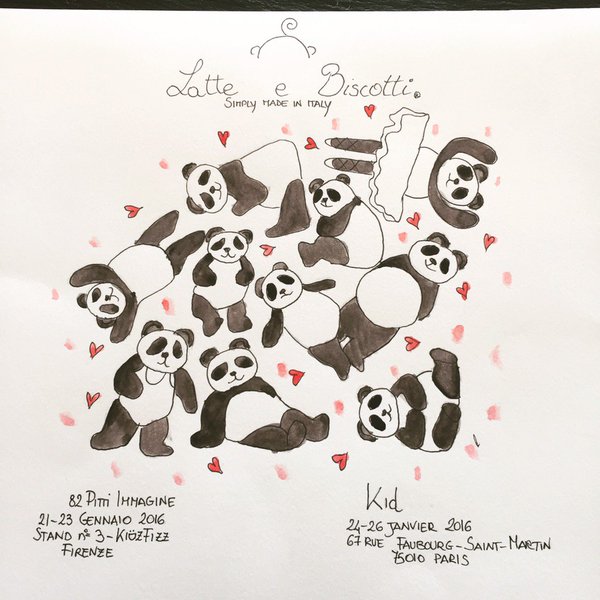 Latte e Biscotti®
SIMPLY MADE IN ITALY
82 PITTI IMMAGINE
21-23 GENNAIO 2016
STAND n° 3 - KIÖZFIZZ
FIRENZE
Kid
24-26 JANVIER 2016
67 RUE FAUBOURG-SAINT-MARTIN
75010 PARIS